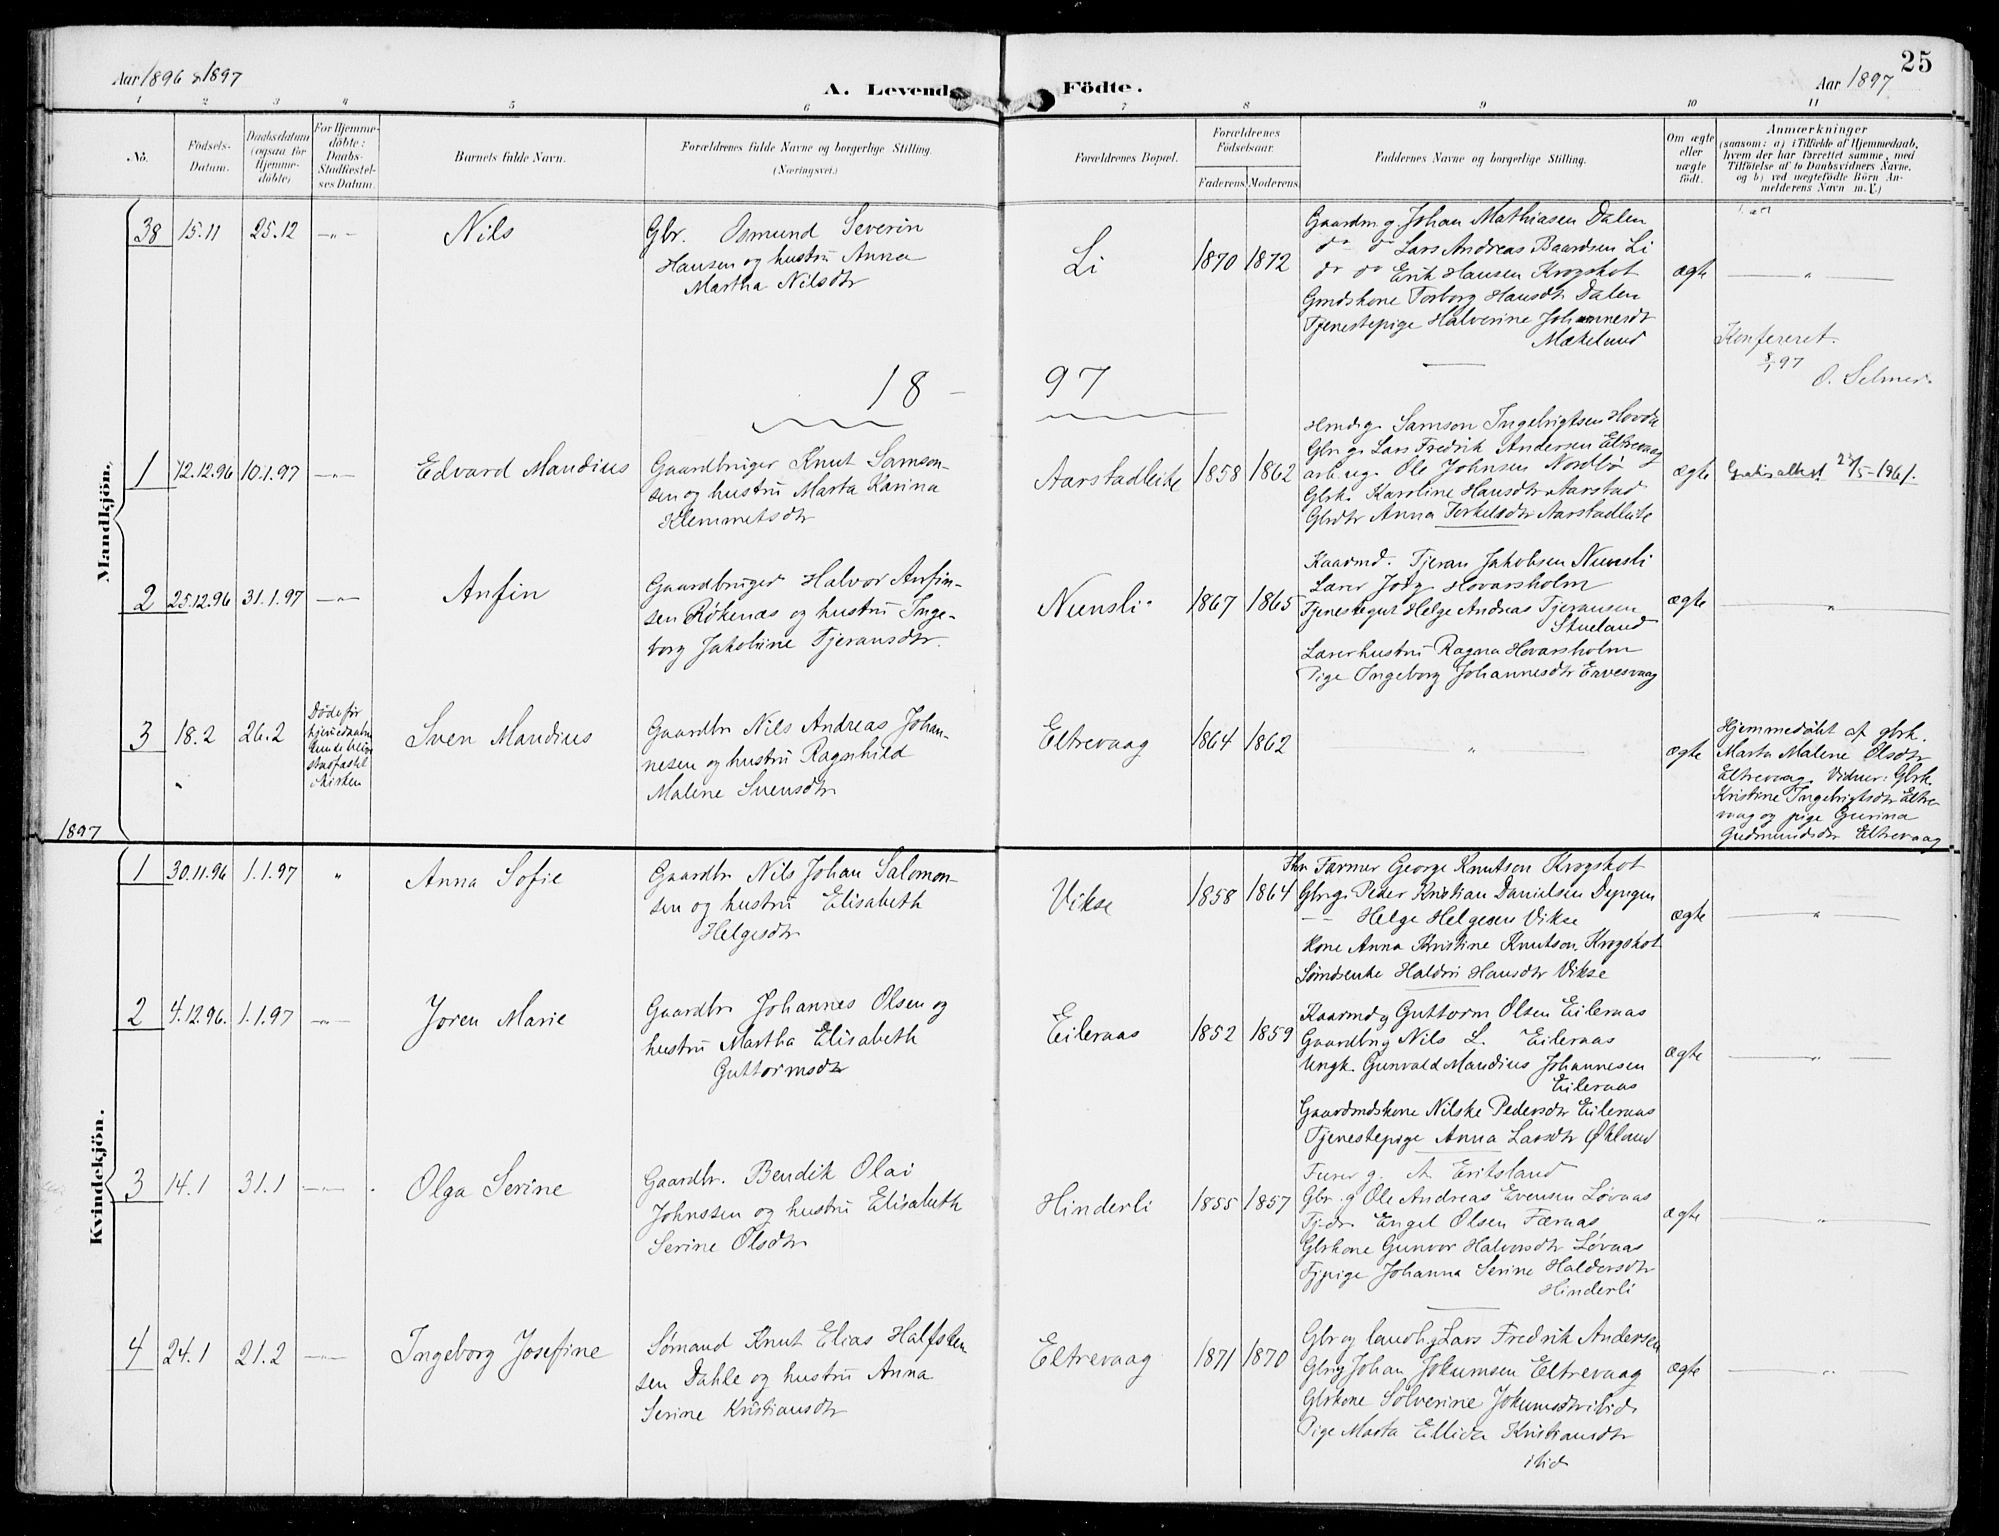 Aar 1896 & 1897
A. Levende Födte.
Aar 1897
25
1 2 3 4 5 6 7 8 9 10 11
No.
Födsels-
Datum.
Daabsdatum
(ogsaa for
Hjemme-
döbte)
For Hjemme-
döbte:
Daabs-
Stadfæstel-
ses Datum.
Barnets fulde Navn.
Forældrenes fulde Navne og borgerlige Stilling.
(Næringsvei.)
Forældrenes Bopæl.
Forældrenes
Födselsaar.
Faderens. Moderens.
Faddernes Navne og borgerlige Stilling.
Om ægte
eller
uægte
födt.
Anmærkninger
(saasom: a) i Tilfælde af Hjemmedaab,
hvem der har forrettet samme, med
Tilföielse af to Daabsvidners Navne.
og b) ved uægtefödte Börn An-
melderens Navn m. V.)
Mandkjön.
38 15.11 25.12 —"— Nils
Gbr. Osmund Severin
Hansen og hustru Anna
Martha Nilsdtr
Li 1870 1872
Gaardm g. Johan Mathiasen Dalen
do do Lars Andreas Baardsen Li
do do Erik Hansen Krogshot
Gmdskone Torborg Hansdtr Dalen
Tjenestepige Halverine Johannesdtr
Mækeland
ægte — " —
Konfereret.
8/1 97
O. Selmer.
18 — 97
1 12.12.96 10.1.97 —"— Edvard Mandius
Gaardbruger Knut Samson-
sen og hustru Marta Karina
Klemmetsdtr
Aarstadleite 1858 1862
Hmdsg. Samson Ingebrigtsen Hovda
Gbr g. Lars Fredrik Andersen Eltrevaag
arb. ug. Ole Johnsen Nordbø
Gbrk. Karoline Hansdtr Aarstad
Gbrdtr Anna Torkelsdtr Aarstadleite
ægte
Gratis attest 25/5-1961.
2 25.12.96 31.1.97 —"— Anfin
Gaardbruger Halvor Anfin-
sen Røkenæs og hustru Inge-
borg Jakobine Tjeransdtr.
Nunsli 1867 1865
Kaarmd. Tjeran Jakobsen Nunsli
Lærer Joh g. Hovarsholm
Tjenestegut Helge Andreas Tjeransen
Stueland
Lærerhustru Ragna Hovarsholm
Pige Ingeborg Johannesdtr Ervesvaag
ægte — " —
3 18.2 26.2
Døde før
kirken
Sven Mandius
Gaardbr Nils Andreas Johan-
nesen og hustru Ragnhild
Malene Svensdtr
Eltrevaag 1864 1862 — " — ægte
Hjemmedøbt af gbrk.
Marta Malene Olsdtr
Eltrevaag. Vidner: Gbrk.
Kristine Ingebrigtsdtr Eltre-
vaag og pige Gurina
Gudmundsdtr Eltrevaag
1897
Kvindekjön.
1 30.11.96 1.1.97 " Anna Sofie
Gaardbr Nils Johan Salomon-
sen og hustru Elisabeth
Helgesdtr
Vikse 1858 1864
Fhv Farmer George Knutson Krogshot
Gbrg. Peder Kristian Danielsen Døpigen
— Helge Helgesen Vikse
Kone Anna Kristine Knutson Krogshot
Sømdsenke Haldri Hansdtr Vikse
ægte — " —
2 4.12.96. 1.1.97 —"— Joren Marie
Gaardbr Johannes Olsen og
hustru Martha Elisabeth
Guttormsdtr
Eileraas 1852 1859
Kaarmd g Guttorm Olsen Eileraas
Gaardbr g Nils L. Eileraas
Ungk. Gunvald Mandius Johannesen
Eileraas
Gaardmdskone Nilske Pedersdtr Eileraas
Tjenestepige Anna Larsdtr Økland
ægte — " —
3 14.1 31.1 —"— Olga Serine
Gaardbr. Bendik Olai
Johnssen og hustru Elisabeth
Serine Olsdtr
Hinderli 1855 1857
Furer g. A. Eriksland
Gbr. g Ole Andreas Evensen Løvaas
Tj.dr. Engel Olsen Færnas
Gbrkone Gunvor Halvorsdtr Løvaas
Tjpige Johanna Serine Haldorsdtr
Hinderli
ægte — " —
4 24.1 21.2 —"— Ingeborg Josefine
Sømand Knut Elias Halfsten
sen Dahle og hustru Anna
Serine Kristiansdtr
Eltrevaag 1871 1870
Gbr og landh g Lars Fredrik Andersen
Gbr g Johan Jokumsen Eltrevaag
Gbrkone Sølverine Jokumsdtr ibid
Pige Marta Ellida Kristiansdtr
ibid
ægte — " —